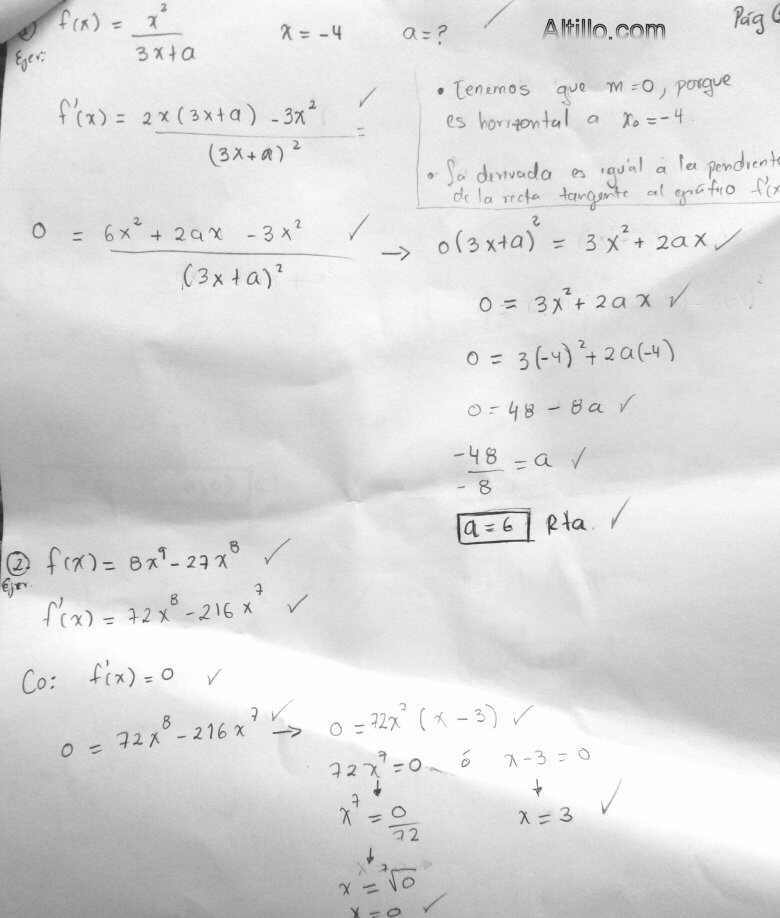 Altillo.com
Pág
① f(x) = x² / (3x+a)    x = -4    a = ?
Ejer:
f'(x) = 2x(3x+a) - 3x² / (3x+a)² =
• Tenemos que m=0, porque
es horizontal a x₀=-4.
• La derivada es igual a la pendiente
de la recta tangente al gráfico f'(x
0 = 6x² + 2ax - 3x² / (3x+a)² → 0(3x+a)² = 3x² + 2ax
0 = 3x² + 2ax
0 = 3(-4)² + 2a(-4)
0 = 48 - 8a
-48 / -8 = a
a = 6 Rta.
② f(x) = 8x⁹ - 27x⁸
Ejer.
f'(x) = 72x⁸ - 216x⁷
Co: f'(x) = 0
0 = 72x⁸ - 216x⁷ → 0 = 72x⁷ (x - 3)
72x⁷ = 0 ó x - 3 = 0
x⁷ = 0/72    x = 3
x = ⁷√0
x = 0